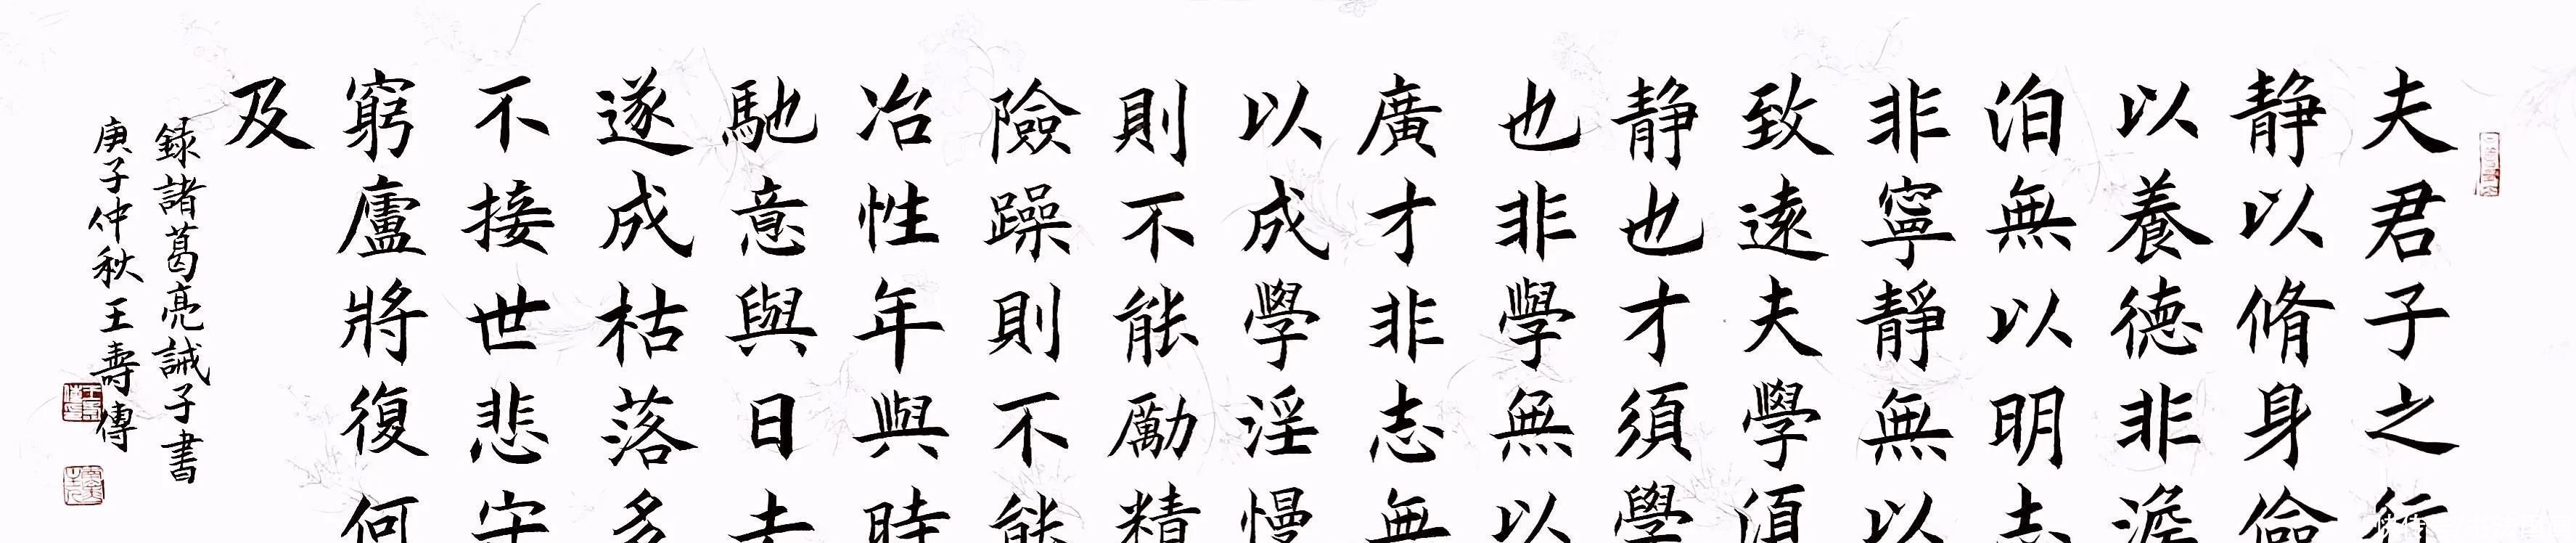 夫君子之行
静以脩身儉
以養德非澹
泊無以明志
非寧靜無以
致遠夫學須
静也才須學
也非學無以
廣才非志無
以成學淫慢
則不能勵精
險躁則不能
冶性年與時
馳意與日去
遂成枯落多
不接世悲守
窮廬將復何
及
録諸葛亮誡子書
庚子仲秋王壽傳